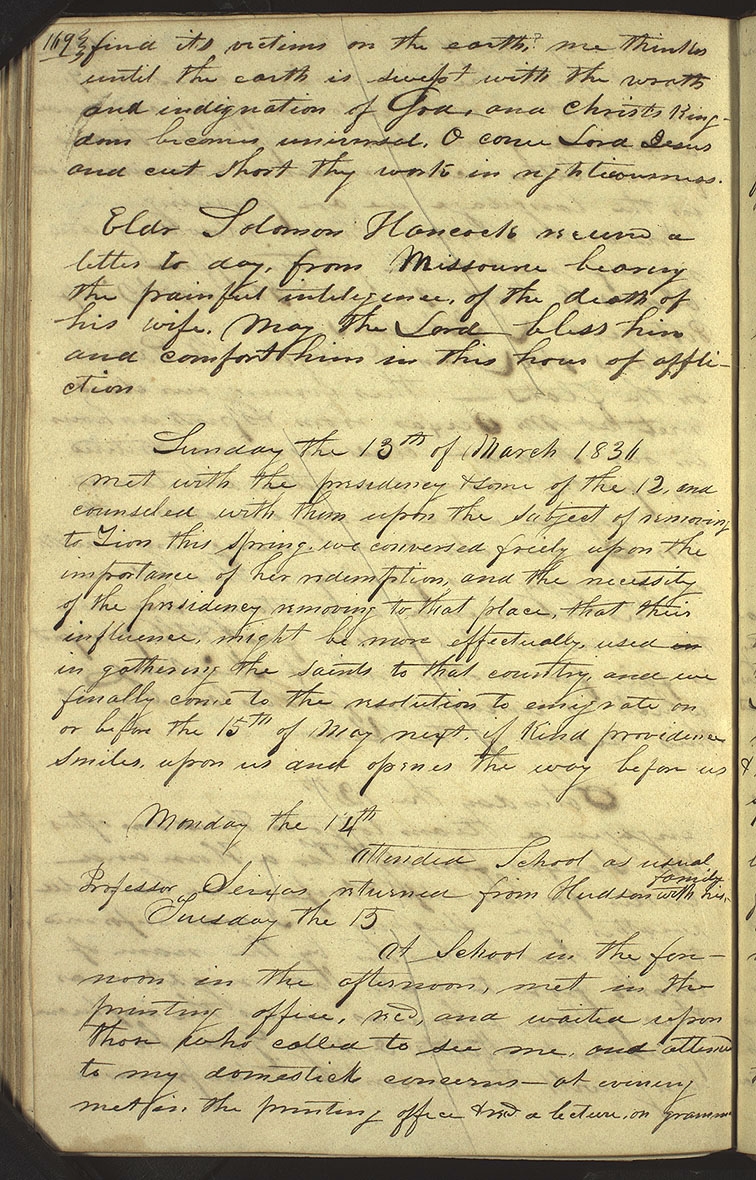 169 find its victims on the earth, me thinks
until the earth is swept with the wrath
and indignation of God, and Christs King-
dom becomes universal. O come Lord Jesus
and cut short thy work in righteousness.
Eldr Solomon Hancock received a
letter to day, from Missourie bearing
the painful inteligence, of the death of
his wife. May the Lord bless him
and comfort him in this hour of affli-
ction
Sunday the 13th of March 1836
met with the presidency & some of the 12. and
counseled with them upon the subject of removing
to Zion this spring. we conversed freely upon the
importance of her redemption, and the necessity
of the presidency removing to that place, that their
influence, might be more effectually, used in
in gathering the saints to that country, and we
finally come to the resolution to emigrate on
or before the 15th of May next. if Kind providence
smiles, upon us and openes the way before us
Monday the 14th
attended School as usual
Professor Seixas returned from Hudson with his family
Tuesday the 15
at School in the fore-
noon in the afternoon, met in the
printing office, recd, and waited upon
those who called to see me, and attend
to my domestick concerns— at evening
met in the printing office & recd a lecture, on gramm